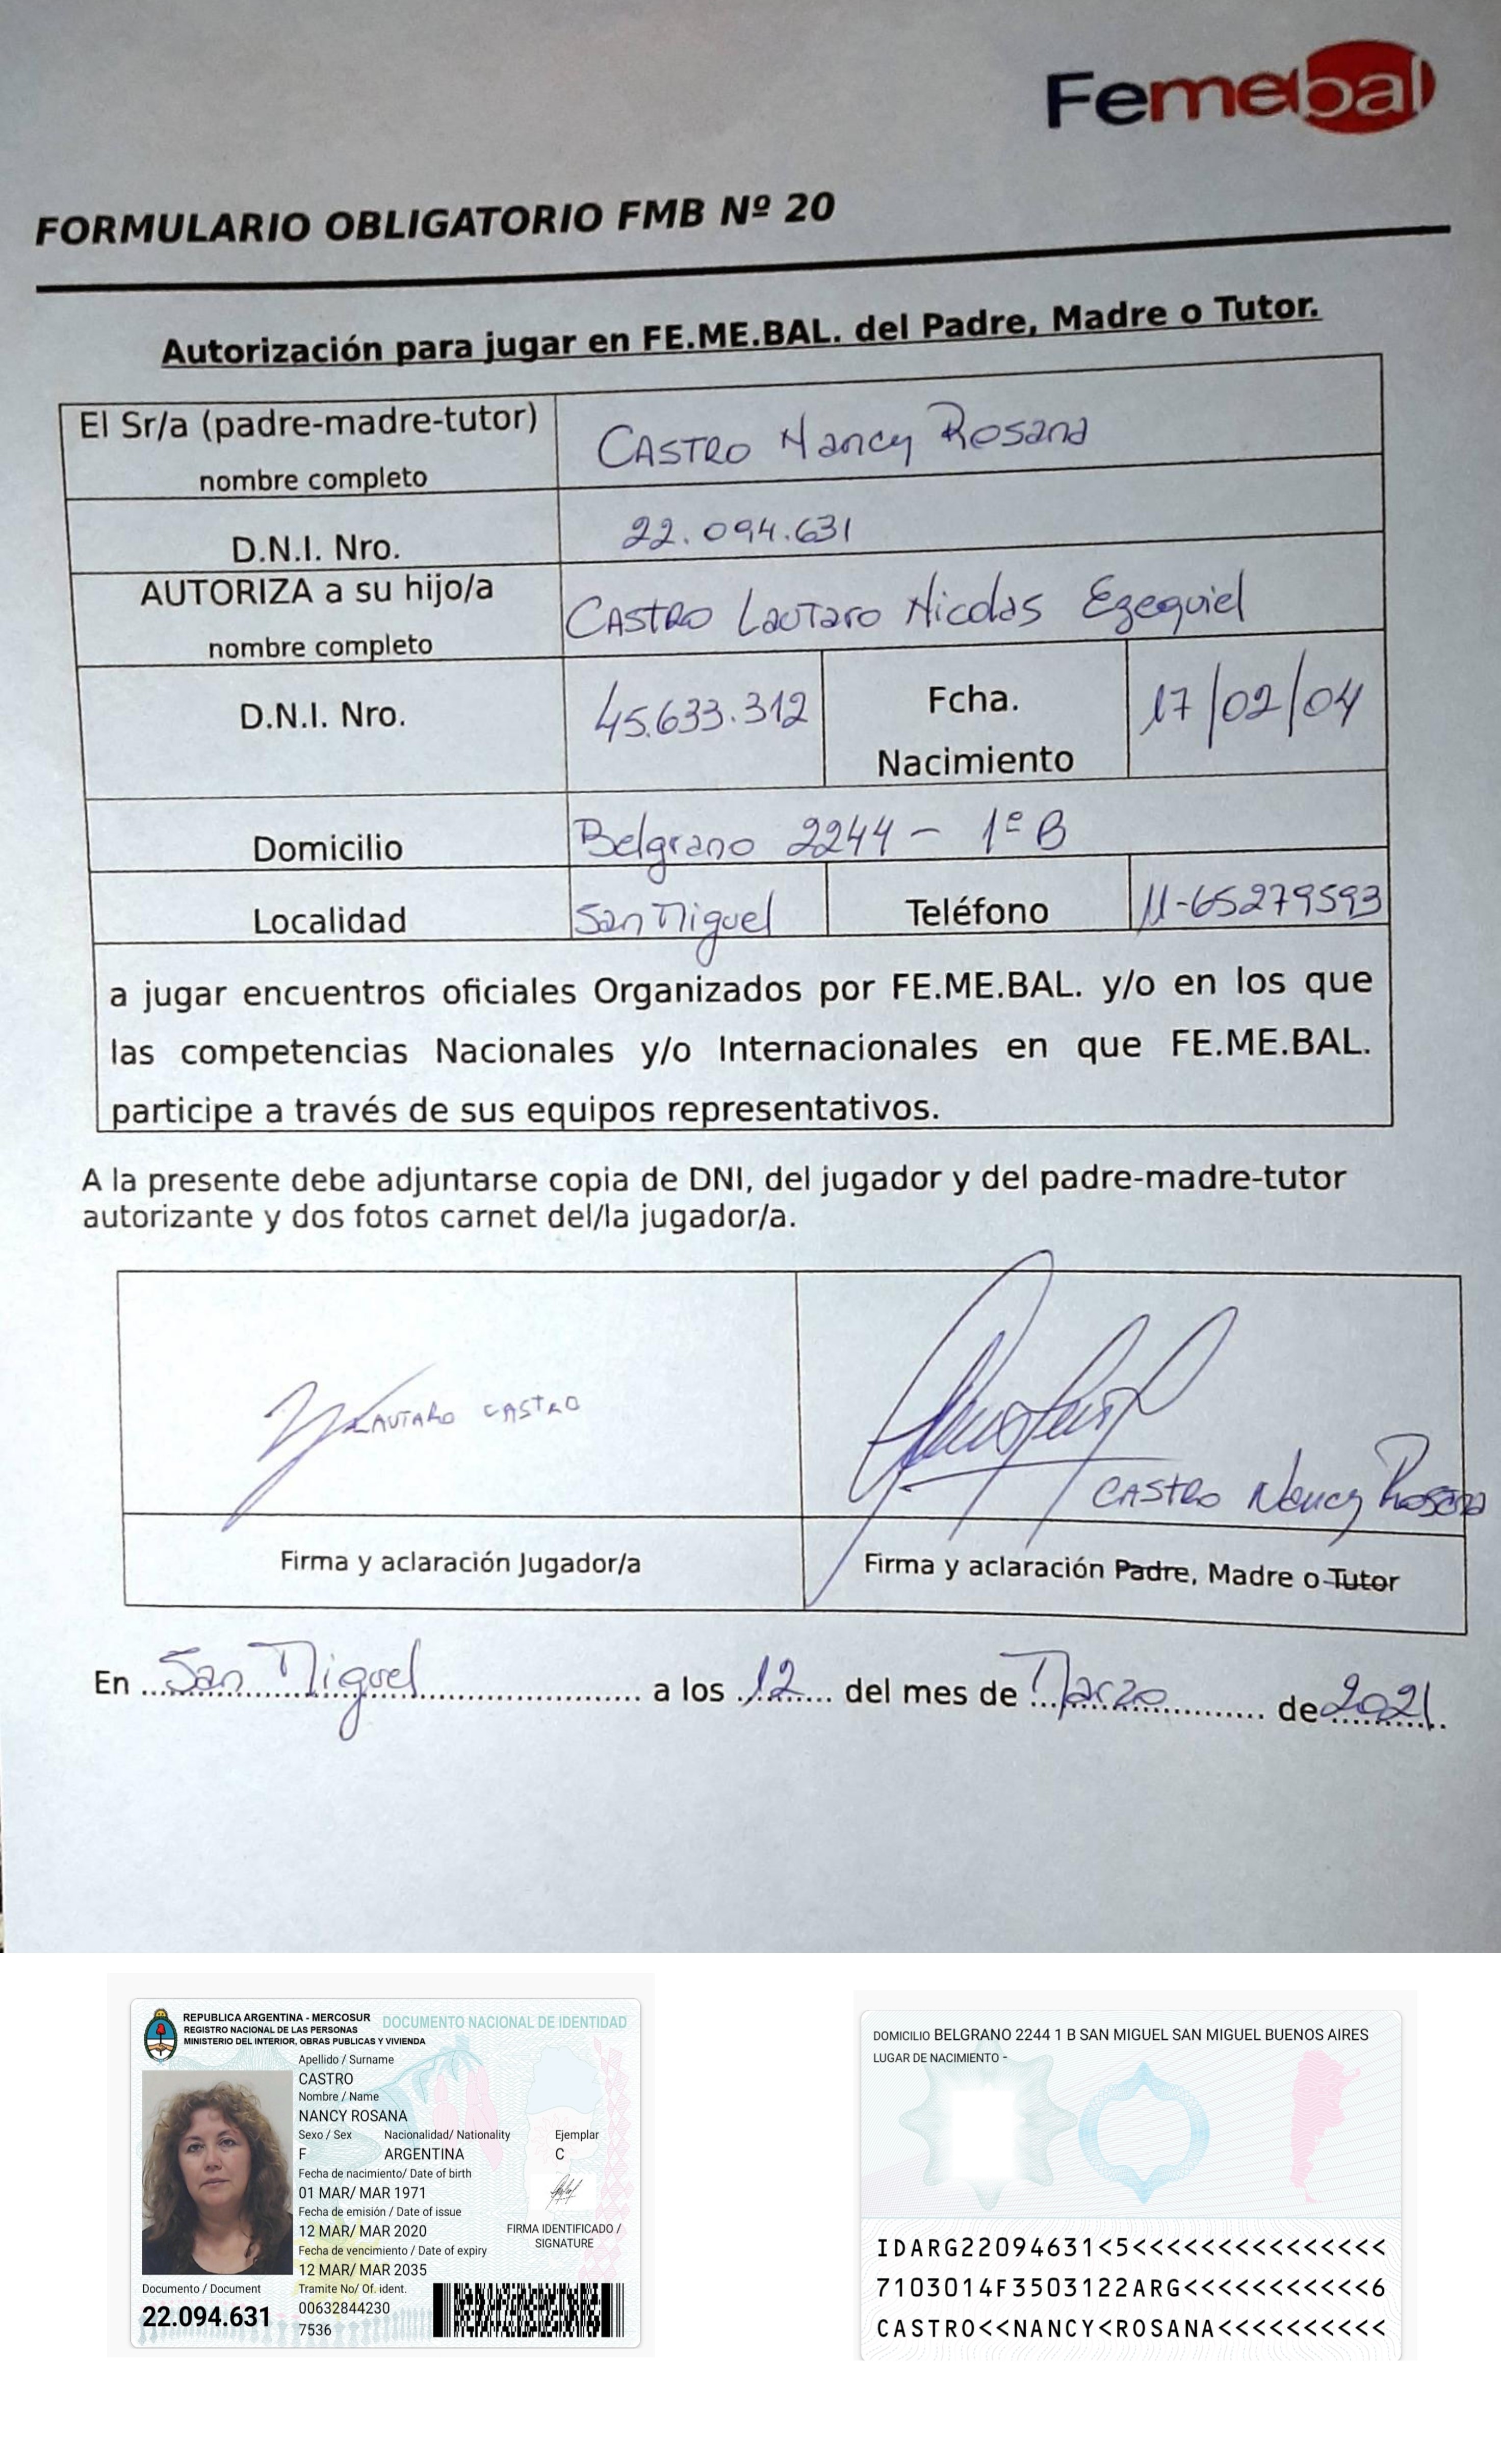 Femebal
FORMULARIO OBLIGATORIO FMB Nº 20
Autorización para jugar en FE.ME.BAL. del Padre, Madre o Tutor.
El Sr/a (padre-madre-tutor) CASTRO Nancy Rosana
nombre completo
D.N.I. Nro. 22.094.631
AUTORIZA a su hijo/a CASTRO Lautaro Nicolas Ezequiel
nombre completo
D.N.I. Nro. 45.633.312 Fcha. 17/02/04
Nacimiento
Domicilio Belgrano 2244 - 1º B
Localidad San Miguel Teléfono 11-65279593
a jugar encuentros oficiales Organizados por FE.ME.BAL. y/o en los que
las competencias Nacionales y/o Internacionales en que FE.ME.BAL.
participe a través de sus equipos representativos.
A la presente debe adjuntarse copia de DNI, del jugador y del padre-madre-tutor
autorizante y dos fotos carnet del/la jugador/a.
LAUTARO CASTRO
CASTRO Nancy Rosana
Firma y aclaración Jugador/a Firma y aclaración Padre, Madre o Tutor
En San Miguel a los 12 del mes de Marzo de 2021.
REPUBLICA ARGENTINA - MERCOSUR
REGISTRO NACIONAL DE LAS PERSONAS
MINISTERIO DEL INTERIOR, OBRAS PUBLICAS Y VIVIENDA
DOCUMENTO NACIONAL DE IDENTIDAD
Apellido / Surname
CASTRO
Nombre / Name
NANCY ROSANA
Sexo / Sex Nacionalidad/ Nationality Ejemplar
F ARGENTINA C
Fecha de nacimiento/ Date of birth
01 MAR/ MAR 1971
Fecha de emisión / Date of issue
12 MAR/ MAR 2020
FIRMA IDENTIFICADO /
SIGNATURE
Fecha de vencimiento / Date of expiry
12 MAR/ MAR 2035
Documento / Document
22.094.631
Tramite No/ Of. ident.
00632844230
7536
DOMICILIO BELGRANO 2244 1 B SAN MIGUEL SAN MIGUEL BUENOS AIRES
LUGAR DE NACIMIENTO -
IDARG22094631<5<<<<<<<<<<<<<<<
7103014F3503122ARG<<<<<<<<<<<6
CASTRO<<NANCY<ROSANA<<<<<<<<<<